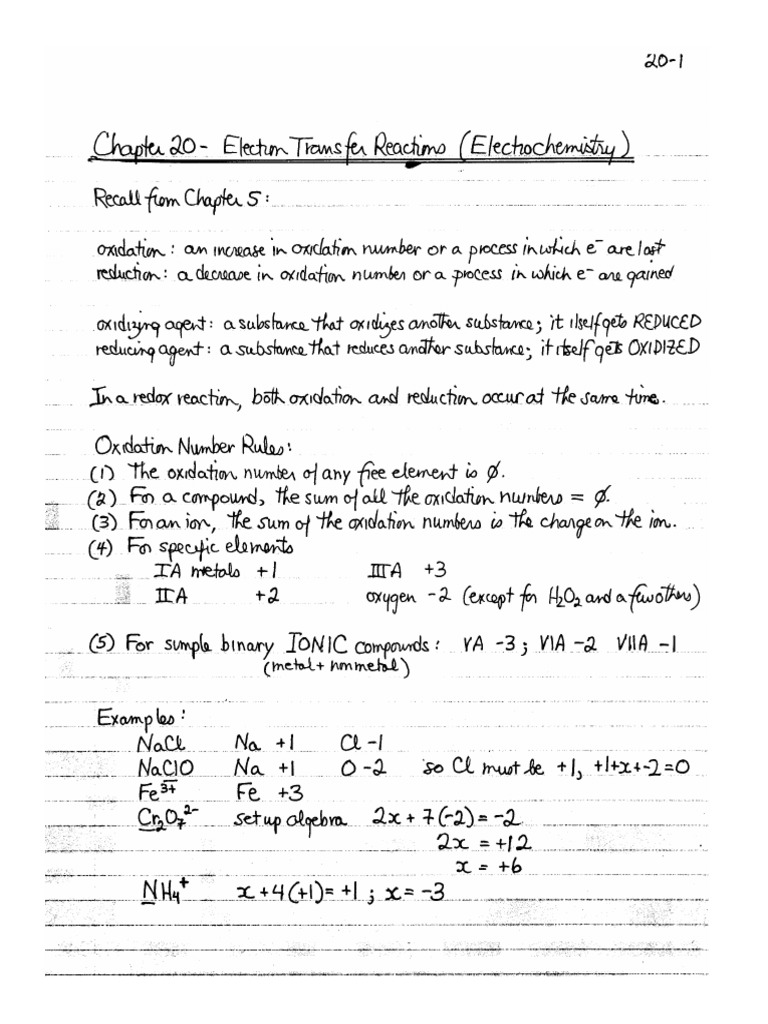 20-1
Chapter 20 - Electron Transfer Reactions (Electrochemistry)
Recall from Chapter 5:
oxidation: an increase in oxidation number or a process in which e⁻ are lost
reduction: a decrease in oxidation number or a process in which e⁻ are gained
oxidizing agent: a substance that oxidizes another substance; it itself gets REDUCED
reducing agent: a substance that reduces another substance; it itself gets OXIDIZED
In a redox reaction, both oxidation and reduction occur at the same time.
Oxidation Number Rules:
(1) The oxidation number of any free element is ∅.
(2) For a compound, the sum of all the oxidation numbers = ∅.
(3) For an ion, the sum of the oxidation numbers is the charge on the ion.
(4) For specific elements
IA metals +1 IIIA +3
IIA +2 oxygen -2 (except for H₂O₂ and a few others)
(5) For simple binary IONIC compounds: VA -3; VIA -2 VIIA -1
(metal + nonmetal)
Examples:
NaCl Na +1 Cl -1
NaClO Na +1 O -2 so Cl must be +1, +1+x+-2=0
Fe³⁺ Fe +3
Cr₂O₇²⁻ set up algebra 2x + 7(-2) = -2
2x = +12
x = +6
NH₄⁺ x + 4(+1) = +1; x = -3